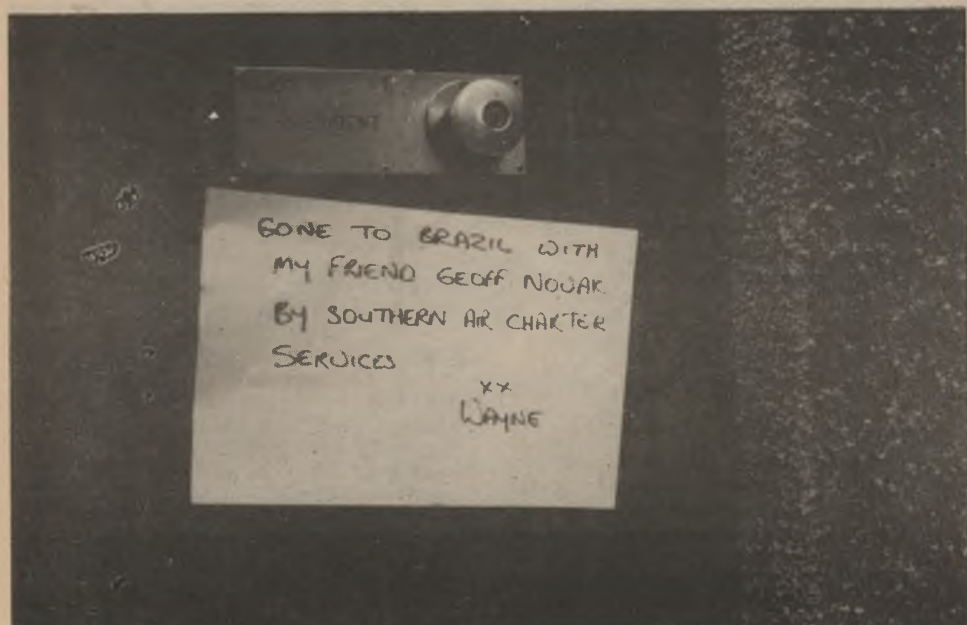 GONE TO BRAZIL WITH
MY FRIEND GEOFF NOVAK
BY SOUTHERN AIR CHARTER
SERVICES
xx
WAYNE